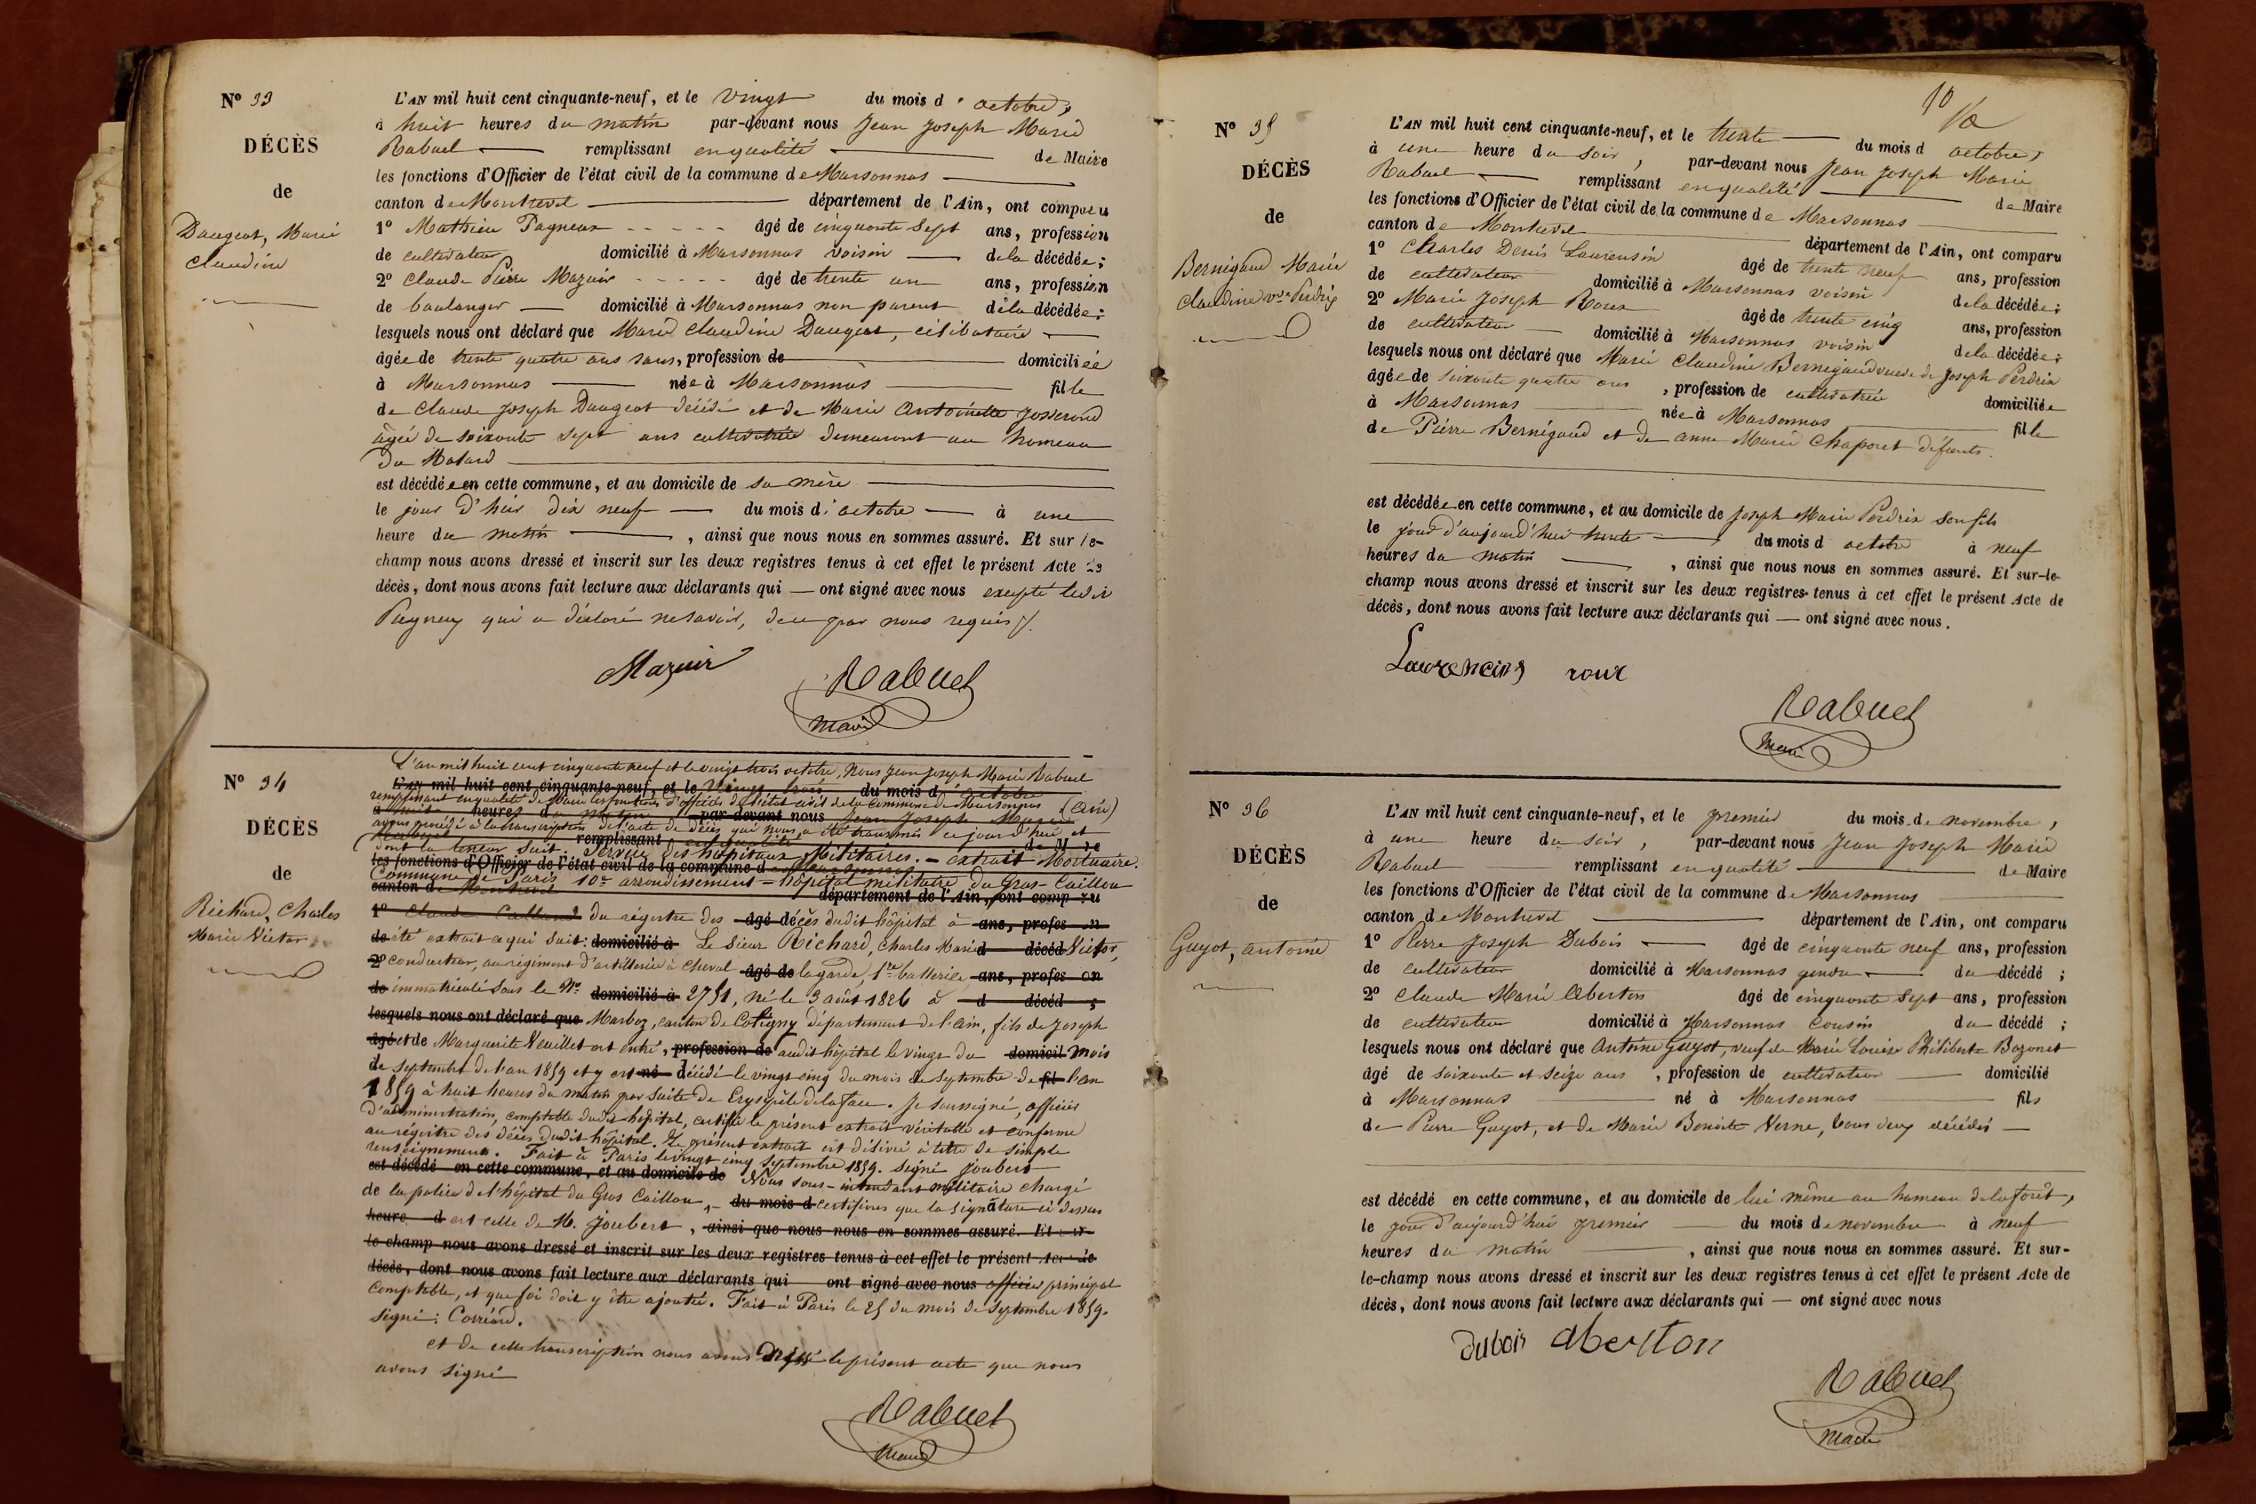 N° 33
DÉCÈS
de
Daugeat, Marie
Claudine
L'AN mil huit cent cinquante-neuf, et le vingt du mois d'octobre,
à huit heures du matin par-devant nous Jean Joseph Marie
Rabuel remplissant en qualité de Maire
les fonctions d'Officier de l'état civil de la commune de Marsonnas
canton de Montrevel département de l'Ain, ont comparu
1° Mathieu Pagneux âgé de cinquante sept ans, profession
de cultivateur domicilié à Marsonnas voisin de la décédée;
2° Claude Pierre Mazuir âgé de trente un ans, profession
de boulanger domicilié à Marsonnas non parent de la décédée;
lesquels nous ont déclaré que Marie Claudine Daugeat, célibataire
âgée de trente quatre ans sans, profession de domiciliée
à Marsonnas née à Marsonnas fille
de Claude Joseph Daugeat décédé et de Marie Antoinette Josserand
âgée de soixante sept ans cultivatrice demeurant au hameau
du Matard
est décédée en cette commune, et au domicile de sa mère
le jour d'hier dix neuf du mois d'octobre à une
heure du matin, ainsi que nous nous en sommes assuré. Et sur-le-
champ nous avons dressé et inscrit sur les deux registres tenus à cet effet le présent Acte de
décès, dont nous avons fait lecture aux déclarants qui — ont signé avec nous excepté ledit
Pagneux qui a déclaré ne savoir, de ce par nous requis.
Mazuir Rabuel
Maire
N° 34
DÉCÈS
de
Richard, Charles
Marie Victor
L'an mil huit cent cinquante neuf et le vingt trois octobre, Nous Jean Joseph Marie Rabuel
L'AN mil huit cent cinquante-neuf, et le vingt trois du mois d'octobre
remplissant en qualité de Maire les fonctions d'officier de l'état civil de la commune de Marsonnas (Ain)
à huit heures du matin par-devant nous Jean Joseph Marie
avons procédé à la transcription de l'acte de décès qui nous a été transmis ce jourd'hui et
Rabuel remplissant en qualité de Maire
dont la teneur suit. Service des hôpitaux Militaires. — extrait Mortuaire.
les fonctions d'Officier de l'état civil de la commune de Marsonnas
Commune de Paris 10e arrondissement = hôpital militaire du Gros-Caillou
canton de Montrevel département de l'Ain, ont comparu
1° Claude du régistre des âgé décès dudit hôpital à ans, profession
de été extrait ce qui suit: domicilié à Le Sieur Richard, Charles Marie d décéd Victor,
2° conducteur, au régiment d'artillerie à cheval âgé de la garde, 1re batterie ans, profession
de immatriculé sous le N° domicilié à 2751, né le 3 août 1826 à d décéd ;
lesquels nous ont déclaré que Marboz, canton de Coligny département de l'ain, fils de Joseph
âgé et de Marguerite Veuillet est entré, profession de audit hôpital le vingt du domicilié mois
de septembre de l'an 1859 et y est né décédé le vingt cinq du mois de septembre de fil l'an
1859 à huit heures du matin par suite de Erysipèle de la face. Je soussigné, officier
d'administration, comptable dudit hôpital, certifie le présent extrait véritable et conforme
au régistre des décès dudit hôpital. Le présent extrait est délivré à titre de simple
renseignement. Fait à Paris le vingt cinq Septembre 1859. signé Joubert
est décédé en cette commune, et au domicile de Nous sous-intendant militaire chargé
de la police de l'hôpital du Gros Caillou, du mois d certifions que la signature ci dessus
heure d est celle de M. Joubert, ainsi que nous nous en sommes assuré. Et sur-
le-champ nous avons dressé et inscrit sur les deux registres tenus à cet effet le présent Acte de
décès, dont nous avons fait lecture aux déclarants qui ont signé avec nous officier principal
comptable, et que foi doit y être ajoutée. Fait à Paris le 25 du mois de Septembre 1859.
Signé: Corréard.
et de cette transcription nous avons dressé le présent acte que nous
avons signé
Rabuel
Maire
10
N° 35
DÉCÈS
de
Bernigaud Marie
Claudine ve Perdrix
L'AN mil huit cent cinquante-neuf, et le trente du mois d octobre,
à une heure du soir, par-devant nous Jean Joseph Marie
Rabuel remplissant en qualité de Maire
les fonctions d'Officier de l'état civil de la commune de Marsonnas
canton de Montrevel département de l'Ain, ont comparu
1° Charles Denis Laurensin âgé de trente neuf ans, profession
de cultivateur domicilié à Marsonnas voisin de la décédée;
2° Marie Joseph Roux âgé de trente cinq ans, profession
de cultivateur domicilié à Marsonnas voisin de la décédée;
lesquels nous ont déclaré que Marie Claudine Bernigaud veuve de Joseph Perdrix
âgée de soixante quatre ans, profession de cultivatrice domiciliée
à Marsonnas née à Marsonnas fille
de Pierre Bernigaud et de anne Marie Chaponet défunts.
est décédée en cette commune, et au domicile de Joseph Marie Perdrix son fils
le jour d'aujourd'hui trente du mois d octobre à neuf
heures du matin, ainsi que nous nous en sommes assuré. Et sur-le-
champ nous avons dressé et inscrit sur les deux registres tenus à cet effet le présent Acte de
décès, dont nous avons fait lecture aux déclarants qui — ont signé avec nous.
Laurencins roux
Rabuel
Maire
N° 36
DÉCÈS
de
Guyot, antoine
L'AN mil huit cent cinquante-neuf, et le premier du mois de novembre,
à une heure du soir, par-devant nous Jean Joseph Marie
Rabuel remplissant en qualité de Maire
les fonctions d'Officier de l'état civil de la commune de Marsonnas
canton de Montrevel département de l'Ain, ont comparu
1° Pierre Joseph Dubois âgé de cinquante neuf ans, profession
de cultivateur domicilié à Marsonnas gendre du décédé;
2° Claude Marie Aberton âgé de cinquante sept ans, profession
de cultivateur domicilié à Marsonnas cousin du décédé;
lesquels nous ont déclaré que Antoine Guyot, veuf de Marie Louise Philiberte Bozonet
âgé de soixante et seize ans, profession de cultivateur domicilié
à Marsonnas né à Marsonnas fils
de Pierre Guyot, et de Marie Benoite Verne, tous deux décédés
est décédé en cette commune, et au domicile de lui même au hameau de la forêt,
le jour d'aujourd'hui premier du mois de novembre à neuf
heures du matin, ainsi que nous nous en sommes assuré. Et sur-
le-champ nous avons dressé et inscrit sur les deux registres tenus à cet effet le présent Acte de
décès, dont nous avons fait lecture aux déclarants qui — ont signé avec nous
dubois aberton
Rabuel
Maire